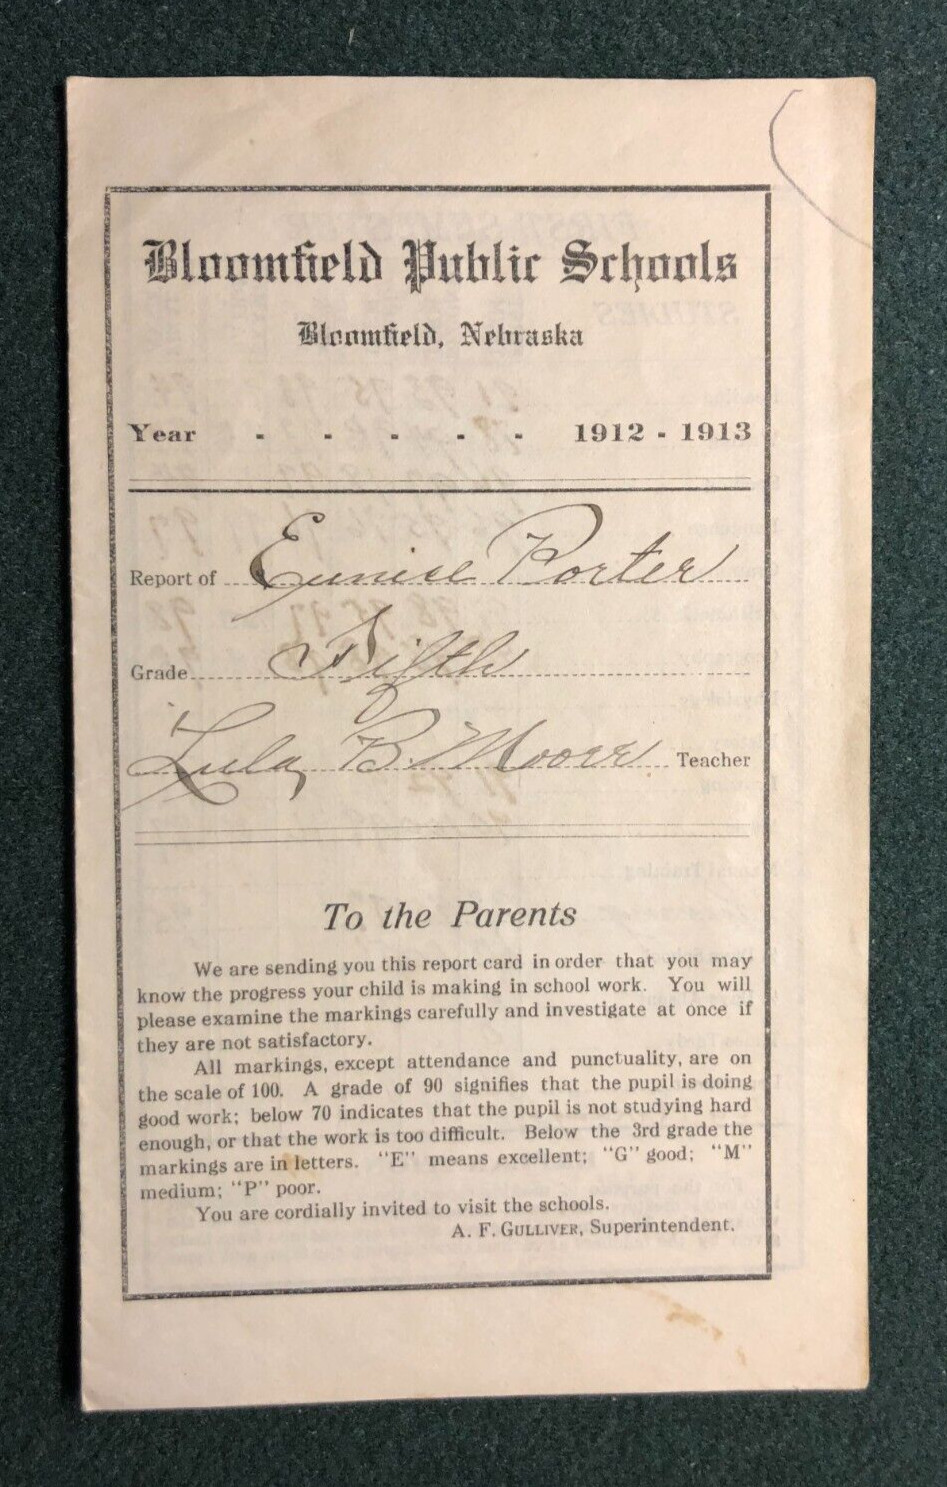 Bloomfield Public Schools
Bloomfield, Nebraska
Year - - - - - 1912 - 1913
Report of Eunice Porter
Grade Fifth
Lula B. Moore Teacher
To the Parents
We are sending you this report card in order that you may
know the progress your child is making in school work. You will
please examine the markings carefully and investigate at once if
they are not satisfactory.
All markings, except attendance and punctuality, are on
the scale of 100. A grade of 90 signifies that the pupil is doing
good work; below 70 indicates that the pupil is not studying hard
enough, or that the work is too difficult. Below the 3rd grade the
markings are in letters. "E" means excellent; "G" good; "M"
medium; "P" poor.
You are cordially invited to visit the schools.
A. F. GULLIVER, Superintendent.